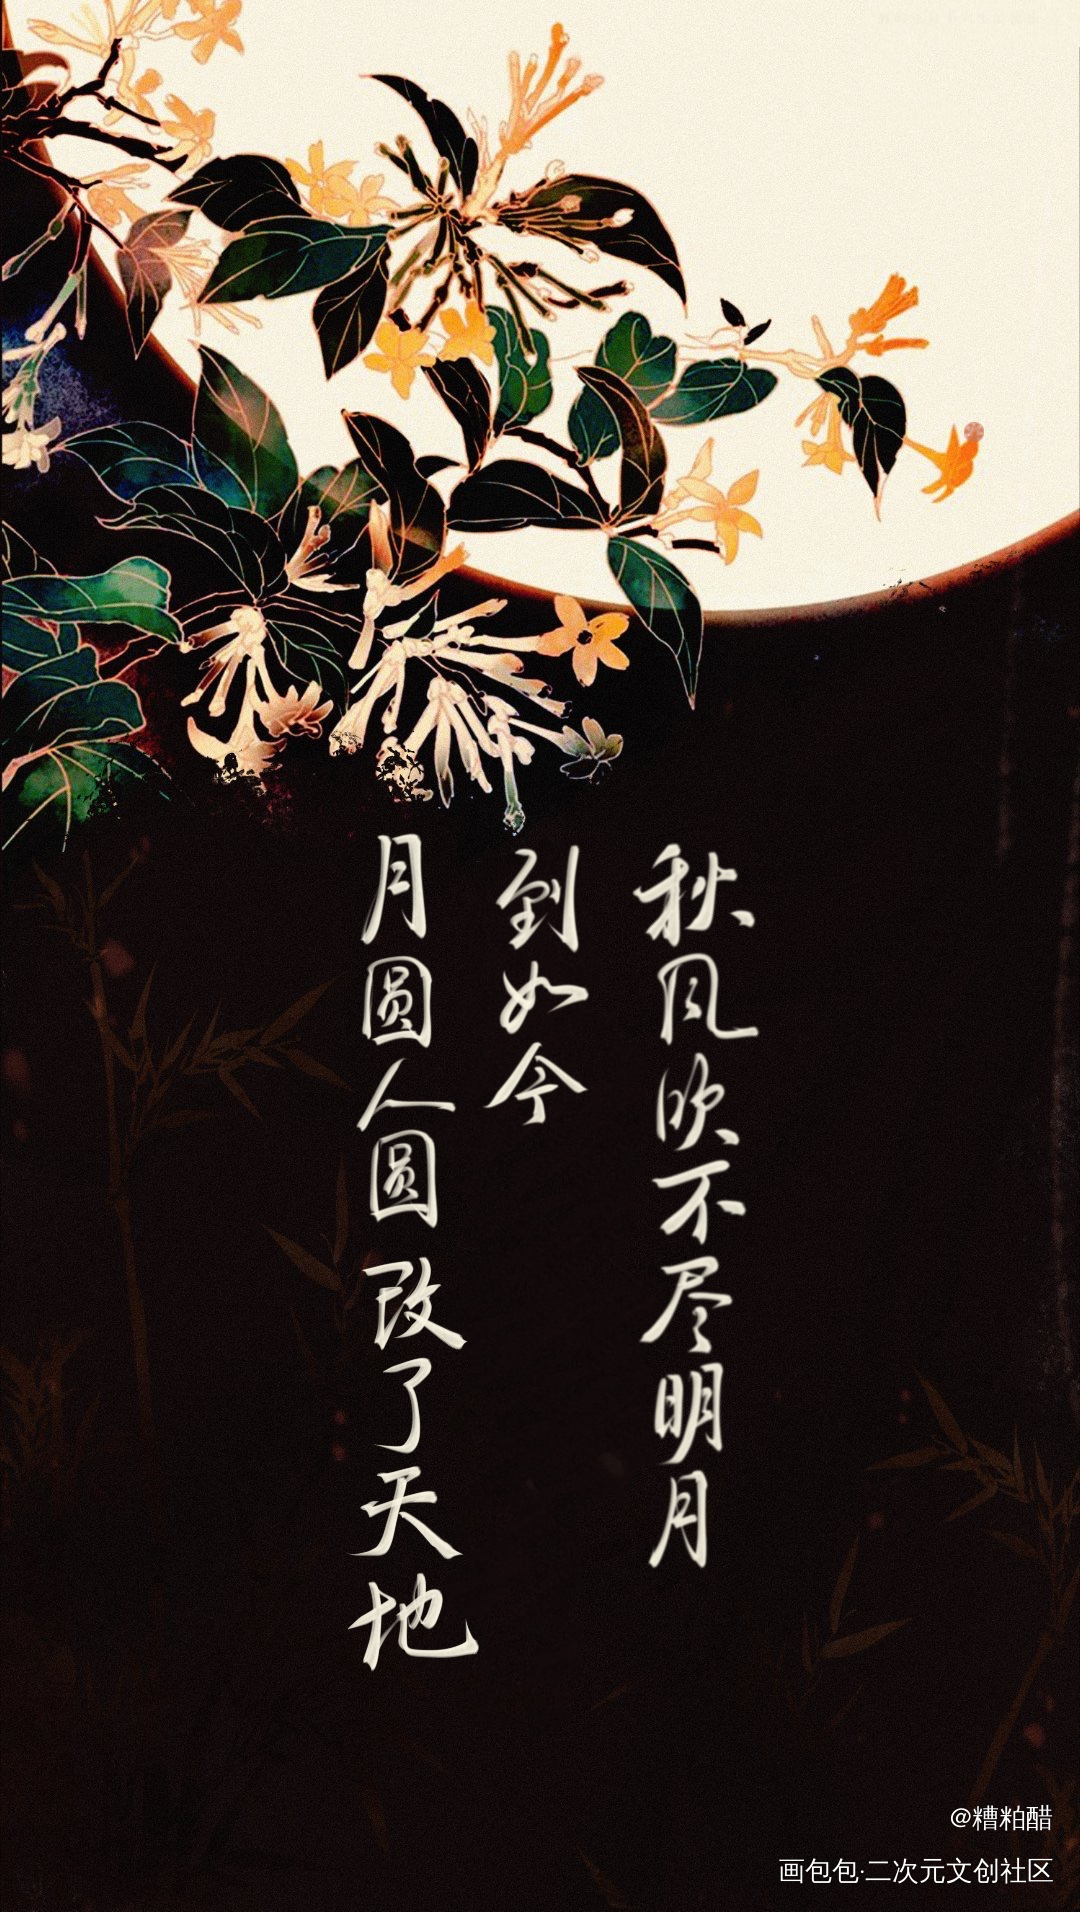 秋风吹不尽明月
到如今
月圆人圆 改了天地
@糟粕醋
画包包·二次元文创社区